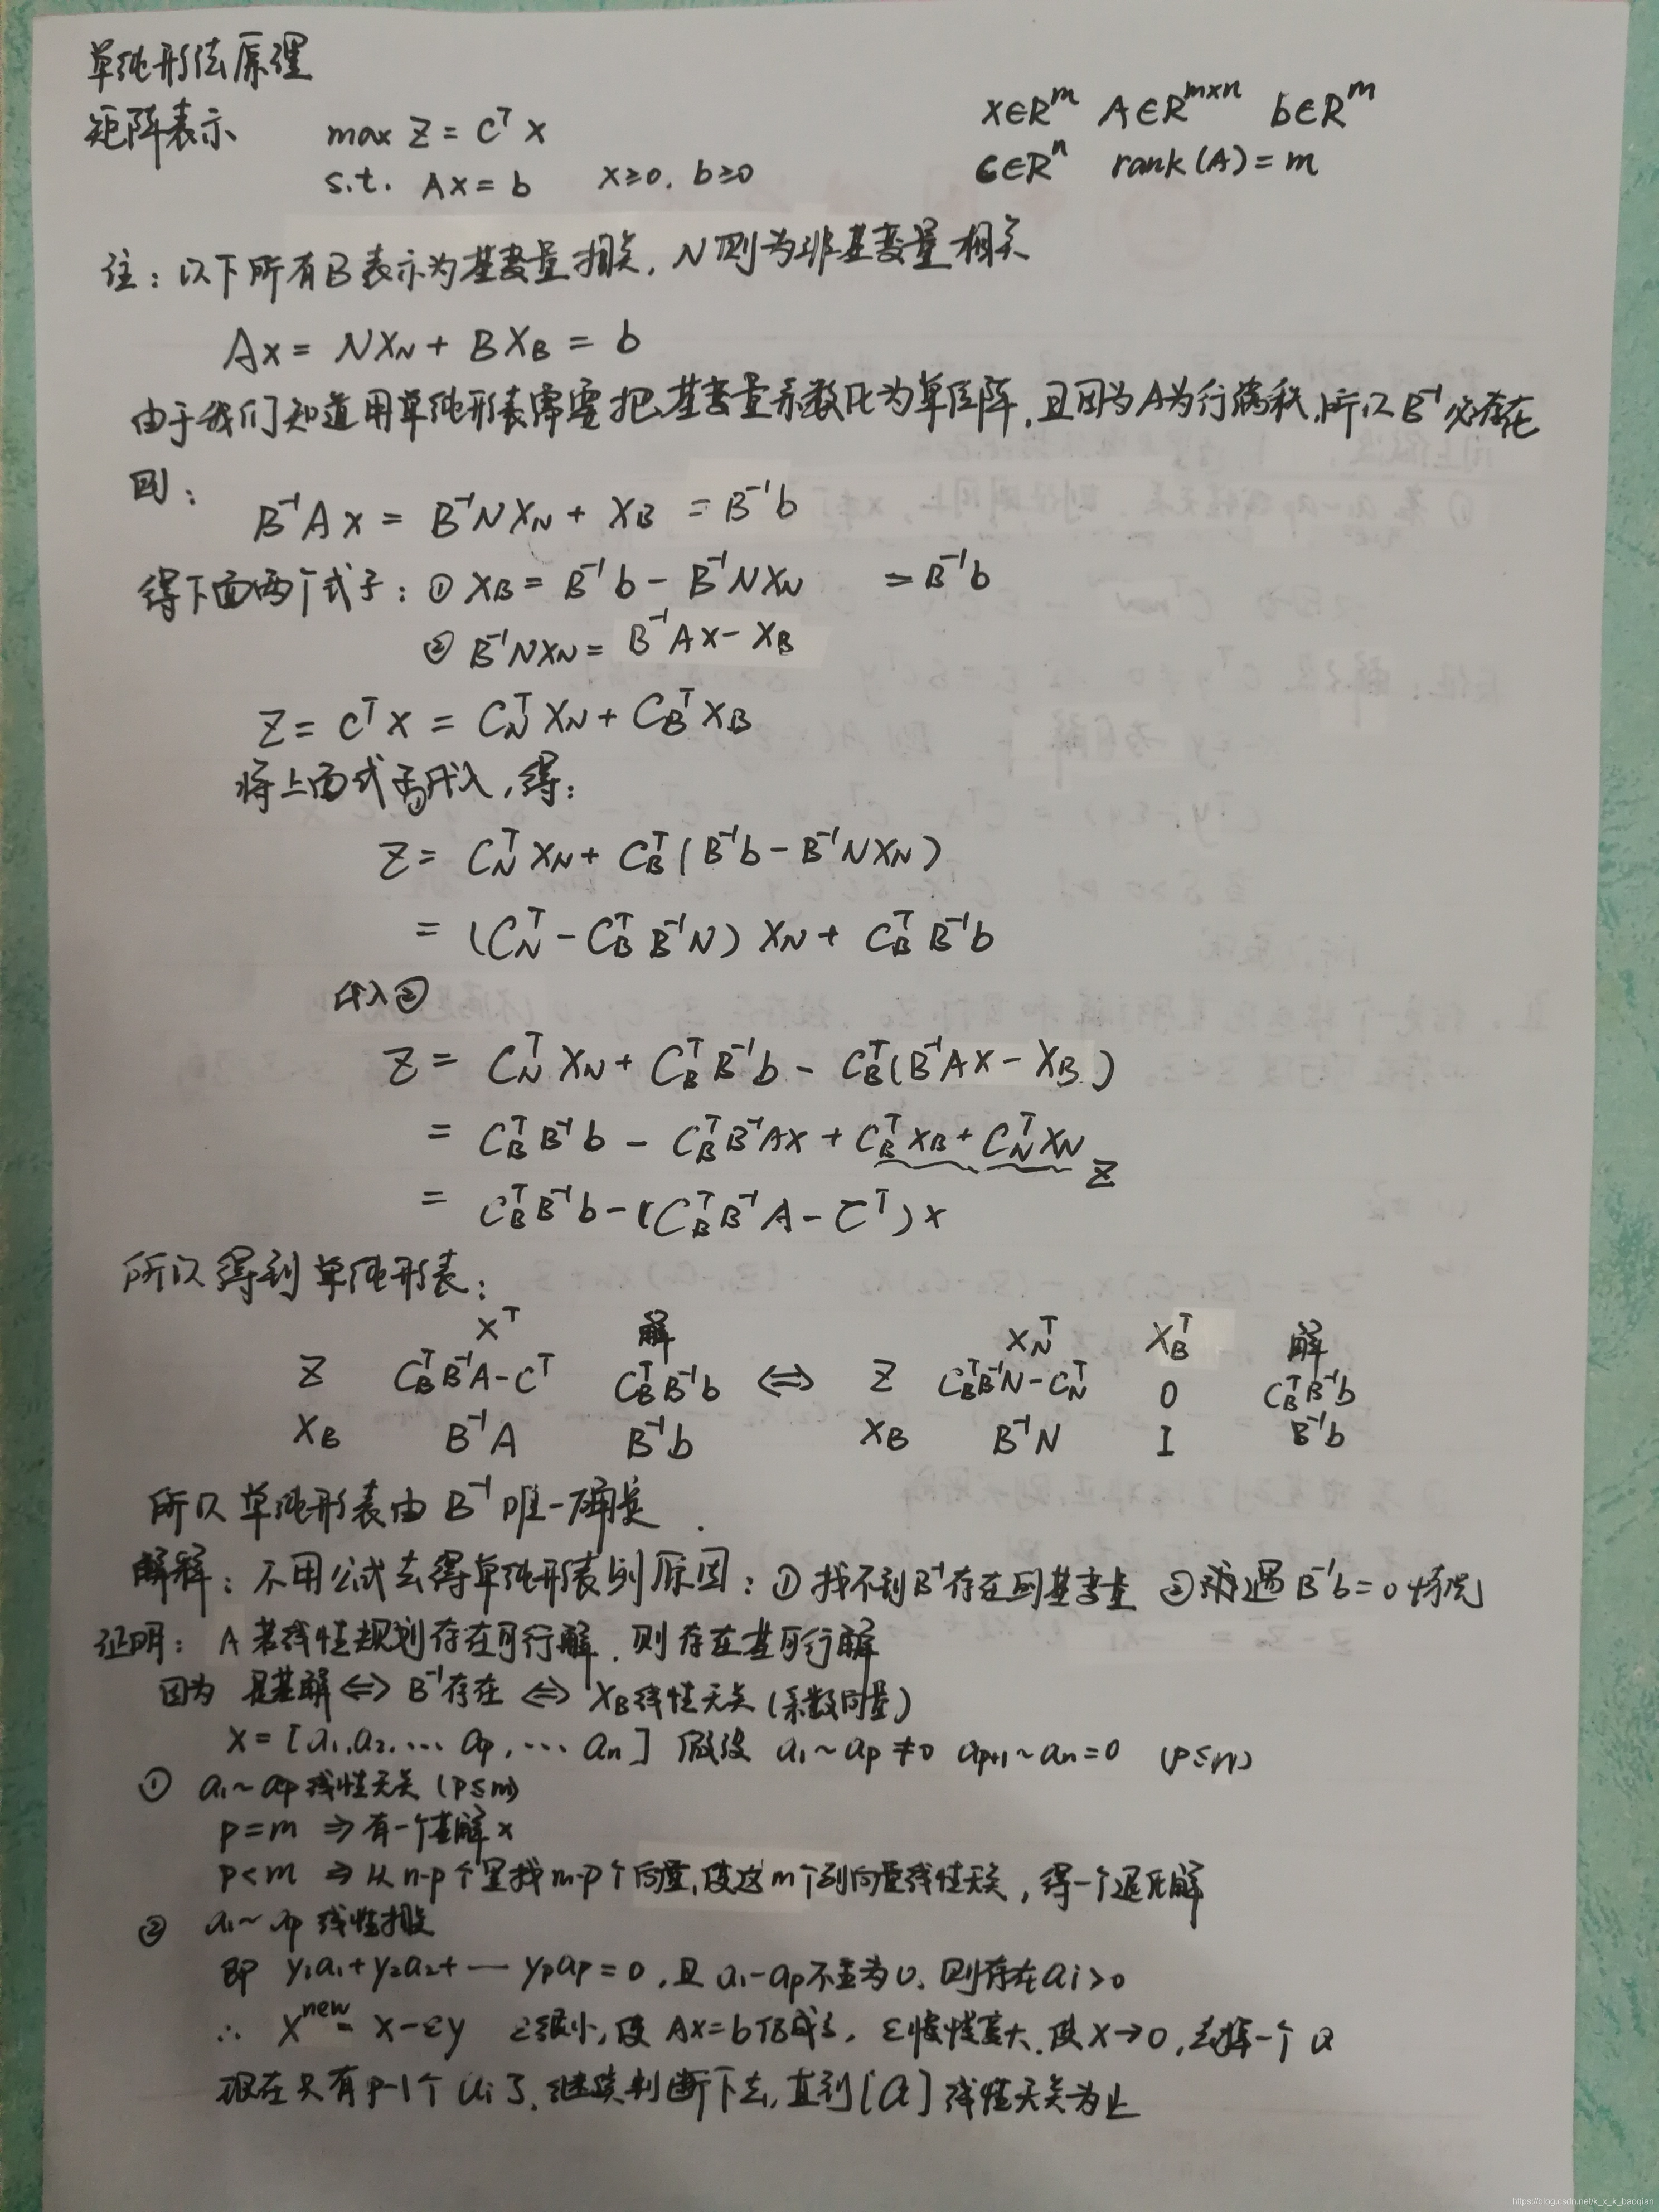 单纯形法原理
矩阵表示 max Z = C^T x    x∈R^m A∈R^{m×n} b∈R^m
s.t. Ax = b x≥0, b≥0    C∈R^n rank(A)=m
注：以下所有B表示为基变量相关, N则为非基变量相关
Ax = NX_N + BX_B = b
由于我们知道用单纯形表需要把基变量系数化为单位阵,且因为A为行满秩,所以B^{-1}必存在
则：
B^{-1}Ax = B^{-1}NX_N + X_B = B^{-1}b
得下面两个式子：① X_B = B^{-1}b - B^{-1}NX_N = B^{-1}b
② B^{-1}NX_N = B^{-1}Ax - X_B
Z = C^T x = C_N^T X_N + C_B^T X_B
将上面式子代入,得：
Z = C_N^T X_N + C_B^T (B^{-1}b - B^{-1}NX_N)
= (C_N^T - C_B^T B^{-1}N) X_N + C_B^T B^{-1}b
代入②
Z = C_N^T X_N + C_B^T B^{-1}b - C_B^T(B^{-1}Ax - X_B)
= C_B^T B^{-1}b - C_B^T B^{-1}Ax + C_B^T X_B + C_N^T X_N Z
= C_B^T B^{-1}b - (C_B^T B^{-1}A - C^T) x
所以得到单纯形表：
x^T 解 X_N^T X_B^T 解
Z C_B^T B^{-1}A - C^T C_B^T B^{-1}b ⇔ Z C_B^T B^{-1}N - C_N^T 0 C_B^T B^{-1}b
X_B B^{-1}A B^{-1}b X_B B^{-1}N I B^{-1}b
所以单纯形表由B^{-1}唯一确定.
解释：不用公式去得单纯形表的原因：①找不到B^{-1}存在的基变量 ②遇B^{-1}b=0情况
证明：A若线性规划存在可行解.则存在基可行解
因为 是基解⇔B^{-1}存在⇔X_B线性无关(系数向量)
x = [a_1,a_2,… a_p,… a_n] 假设 a_1~a_p≠0 a_{p+1}~a_n=0 (p≤n)
① a_1~a_p线性无关(p≤m)
p=m ⇒有一个基解x
p<m ⇒从n-p个里找m-p个向量,使这m个列向量线性无关,得一个退化解
② a_1~a_p线性相关
即 y_1a_1+y_2a_2+ — y_pa_p=0,且a_1-a_p不全为0.则存在a_i>0
∴ X^{new} = x-εy ε很小,使Ax=b仍成立. ε慢慢变大.使X→0,去掉一个a
现在只有p-1个a_i了.继续判断下去,直到[a]线性无关为止
https://blog.csdn.net/k_x_k_baoqian